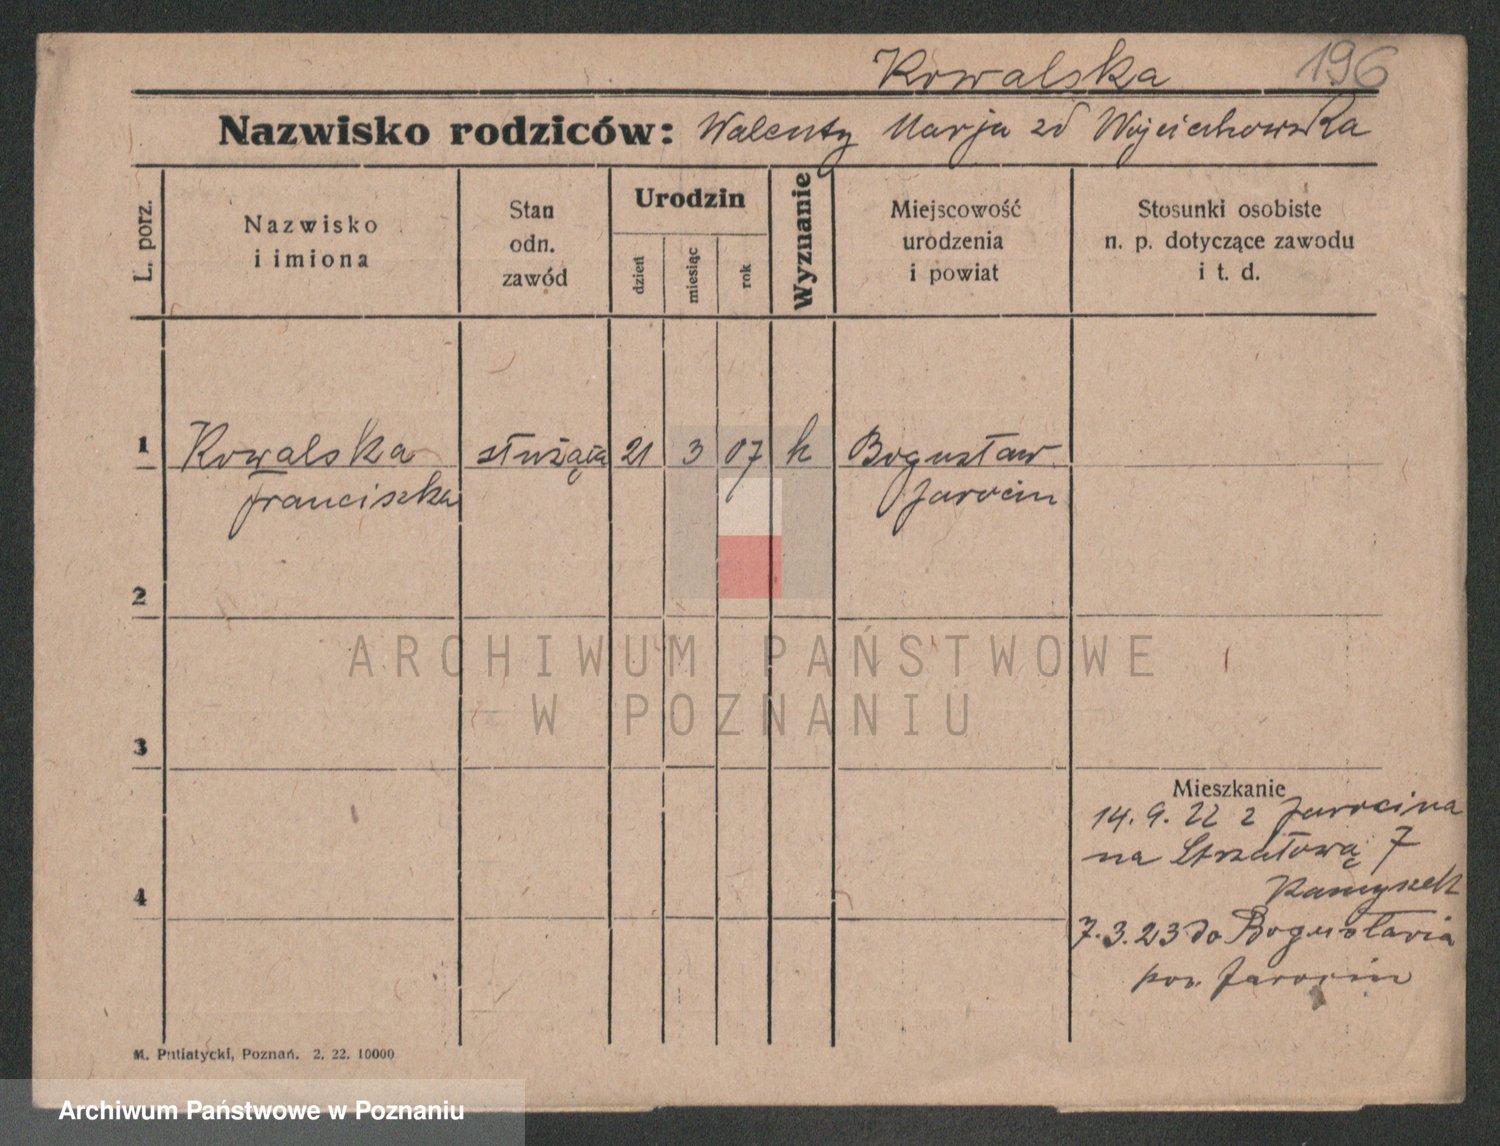 Kowalska 196
Nazwisko rodziców: Walenty Marja zd Wojciechowska
L. porz.
Nazwisko
i imiona
Stan
odn.
zawód
Urodzin
dzień
miesiąc
rok
Wyznanie
Miejscowość
urodzenia
i powiat
Stosunki osobiste
n. p. dotyczące zawodu
i t. d.
1 Kowalska służąca 21 3 07 k Bogusław
Franciszka Jarocin
2
3
4
Mieszkanie
14. 9. 22 z Jarocina
na Strzałową 7
7. 3. 23 do Bogusławia
pow. Jarocin
M. Putiatycki, Poznań. 2. 22. 10000
ARCHIWUM PAŃSTWOWE
W POZNANIU
Archiwum Państwowe w Poznaniu